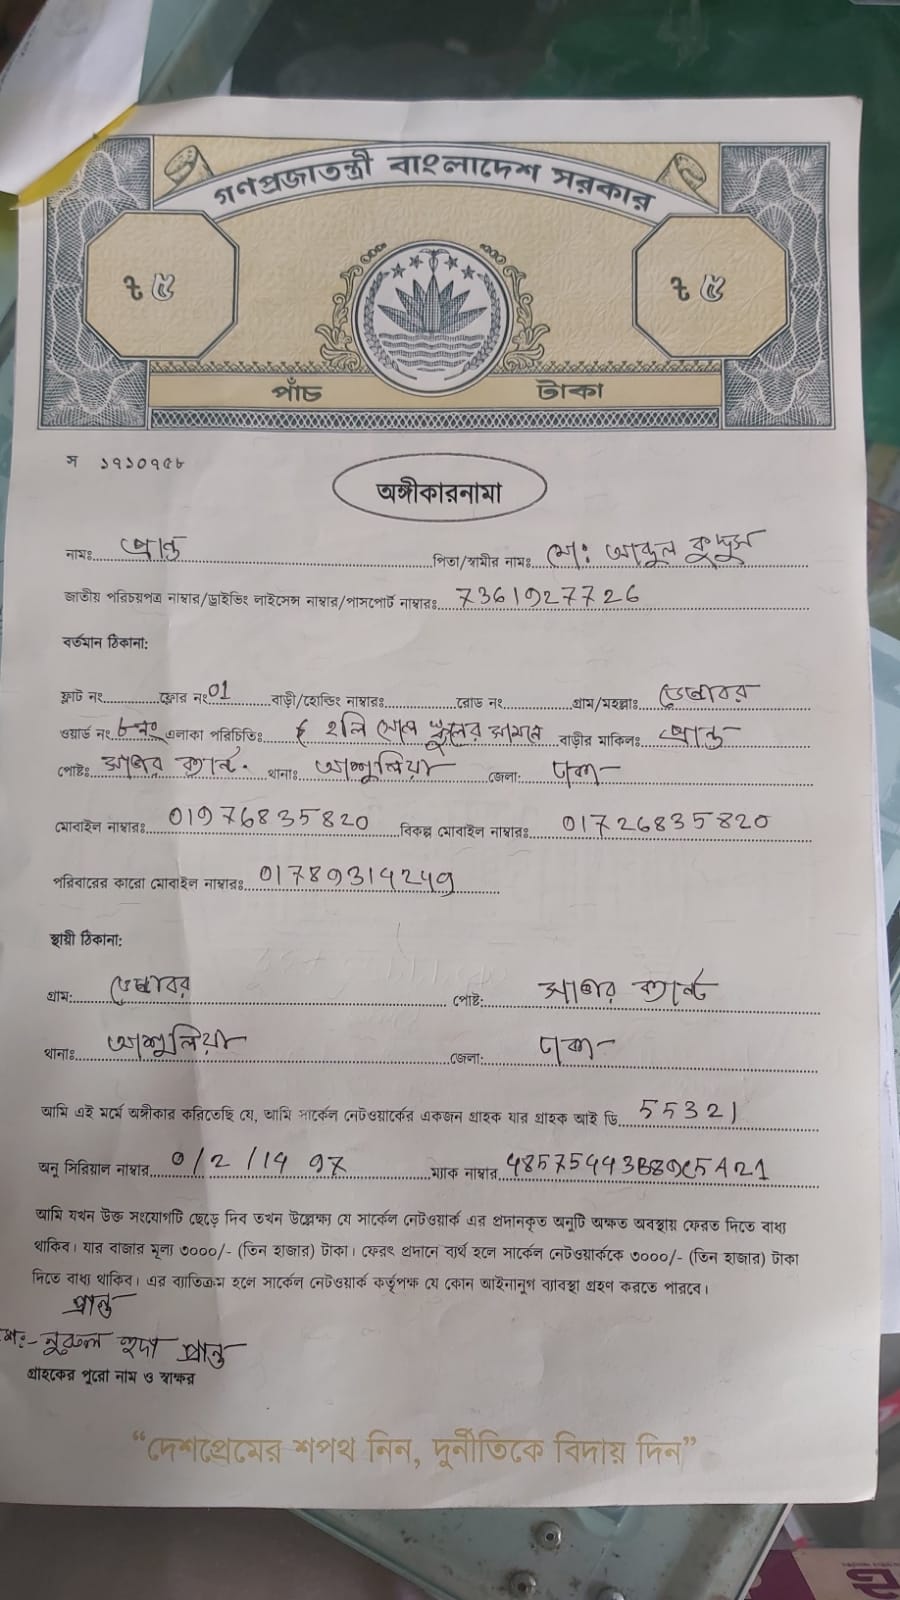 গণপ্রজাতন্ত্রী বাংলাদেশ সরকার
৳ ৫ ৳ ৫
পাঁচ টাকা
স ১৭১০৭৫৮
অঙ্গীকারনামা
নামঃ প্রান্ত পিতা/স্বামীর নামঃ মোঃ আব্দুল কুদ্দুস
জাতীয় পরিচয়পত্র নাম্বার/ড্রাইভিং লাইসেন্স নাম্বার/পাসপোর্ট নাম্বারঃ 7361927726
বর্তমান ঠিকানা:
ফ্লাট নং ফ্লোর নং 01 বাড়ী/হোল্ডিং নাম্বারঃ রোড নং গ্রাম/মহল্লাঃ ডেন্ডাবর
ওয়ার্ড নং ৮নং এলাকা পরিচিতিঃ হলি সোল স্কুলের সামনে বাড়ীর মালিকঃ প্রান্ত
পোষ্টঃ সাভার ক্যান্ট. থানাঃ আশুলিয়া জেলা: ঢাকা
মোবাইল নাম্বারঃ 01976835820 বিকল্প মোবাইল নাম্বারঃ 01726835820
পরিবারের কারো মোবাইল নাম্বারঃ 01789314249
স্থায়ী ঠিকানা:
গ্রাম: ডেন্ডাবর পোষ্ট: সাভার ক্যান্ট
থানাঃ আশুলিয়া জেলা: ঢাকা
আমি এই মর্মে অঙ্গীকার করিতেছি যে, আমি সার্কেল নেটওয়ার্কের একজন গ্রাহক যার গ্রাহক আই ডি 55321
অনু সিরিয়াল নাম্বার 0/2/14 97 ম্যাক নাম্বার
আমি যখন উক্ত সংযোগটি ছেড়ে দিব তখন উল্লেক্ষ্য যে সার্কেল নেটওয়ার্ক এর প্রদানকৃত অনুটি অক্ষত অবস্থায় ফেরত দিতে বাধ্য
থাকিব। যার বাজার মূল্য ৩০০০/- (তিন হাজার) টাকা। ফেরৎ প্রদানে ব্যর্থ হলে সার্কেল নেটওয়ার্ককে ৩০০০/- (তিন হাজার) টাকা
দিতে বাধ্য থাকিব। এর ব্যাতিক্রম হলে সার্কেল নেটওয়ার্ক কর্তৃপক্ষ যে কোন আইনানুগ ব্যাবস্থা গ্রহণ করতে পারবে।
প্রান্ত
মোঃ- নুরুল হুদা প্রান্ত
গ্রাহকের পুরো নাম ও স্বাক্ষর
“দেশপ্রেমের শপথ নিন, দুর্নীতিকে বিদায় দিন”